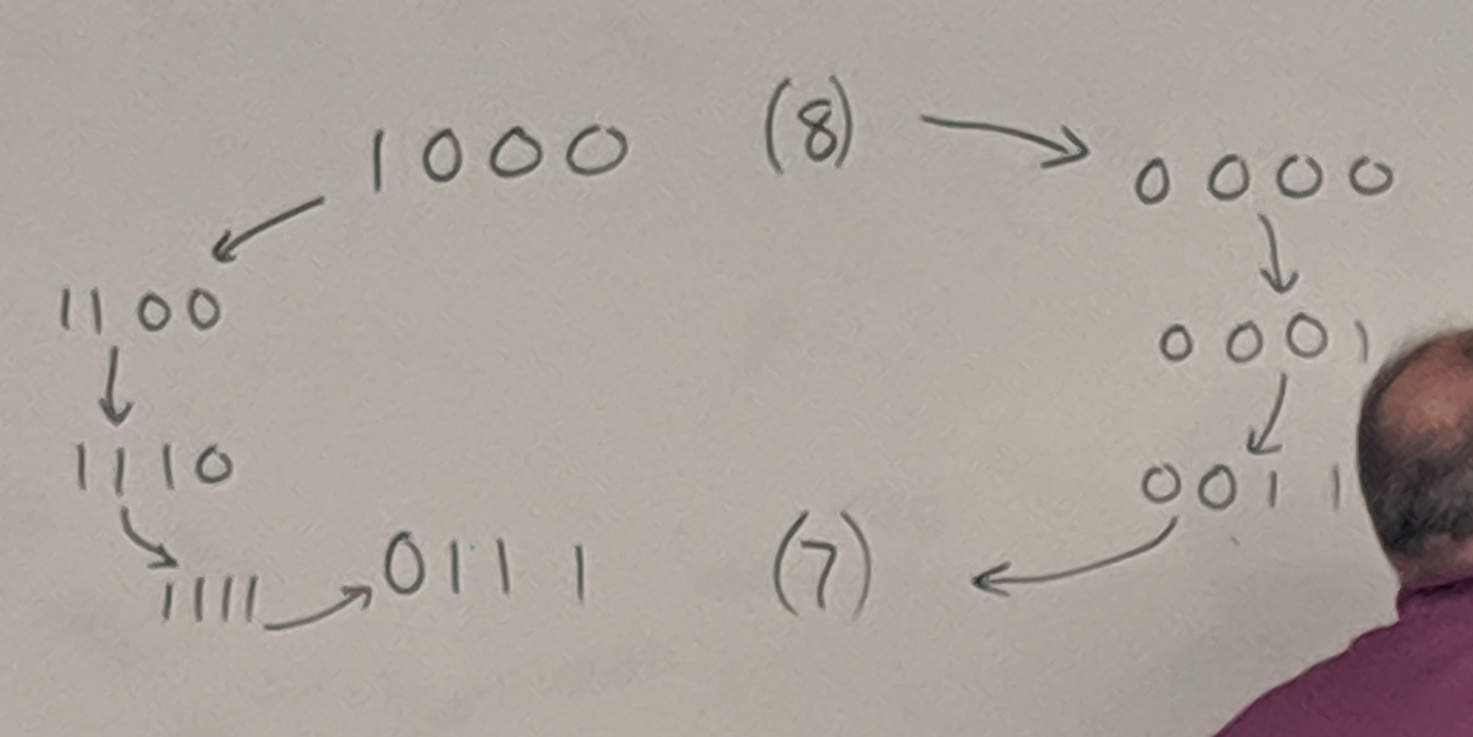 1000 (8)
0000
1100
0001
1110
0011
1111
0111 (7)